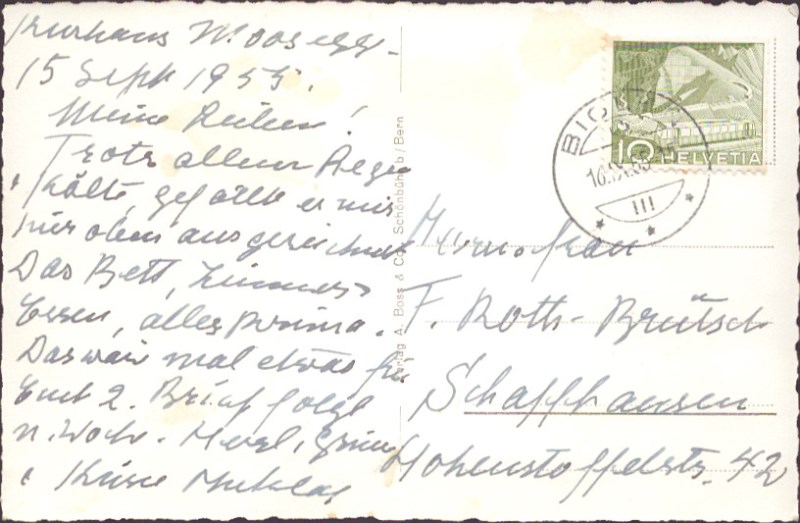 Kurhaus Moosegg
15 Sept 1955.
Meine Lieben!
Trotz allem Regen
& Kälte, gefällt es mir
hier oben ausgezeichnet
Das Bett, Zimmer
Essen, alles prima.
Das wär mal etwas für
Euch 2. Brief folgt
n. Woche. Herzl. Grüsse
& Küsse
Verlag A. Boss & Co. Schönbühl b/Bern
10 HELVETIA
16.IX.55
III
Herrn & Frau
F. Roth-Brütsch
Schaffhausen
Hohenstoffelstr. 42